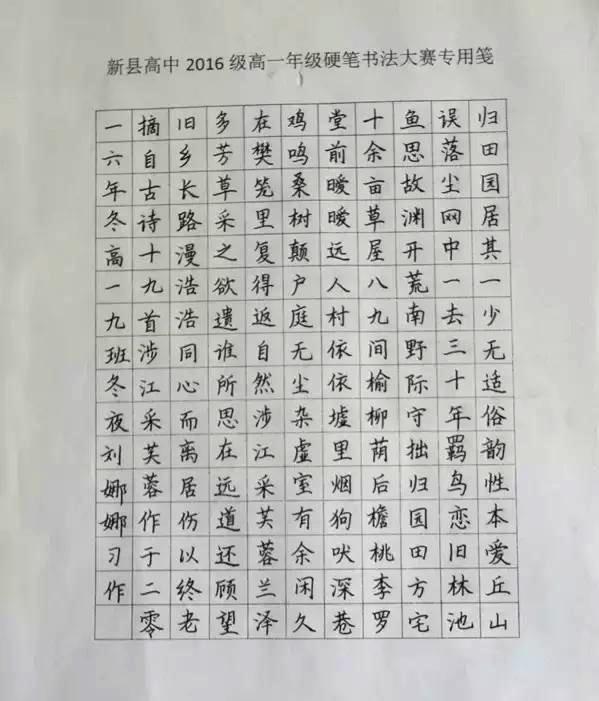 新县高中 2016 级高一年级硬笔书法大赛专用笺
归田园居其一少无适俗韵性本爱丘山
误落尘网中一去三十年羁鸟恋旧林池
鱼思故渊开荒南野际守拙归园田方宅
十余亩草屋八九间榆柳荫后檐桃李罗
堂前暧暧远人村依依墟里烟狗吠深巷
鸡鸣桑树颠户庭无尘杂虚室有余闲久
在樊笼里复得返自然涉江采芙蓉兰泽
多芳草采之欲遗谁所思在远道还顾望
旧乡长路漫浩浩同心而离居伤以终老
摘自古诗十九首涉江采芙蓉作于二零
一六年冬高一九班冬夜刘娜娜习作